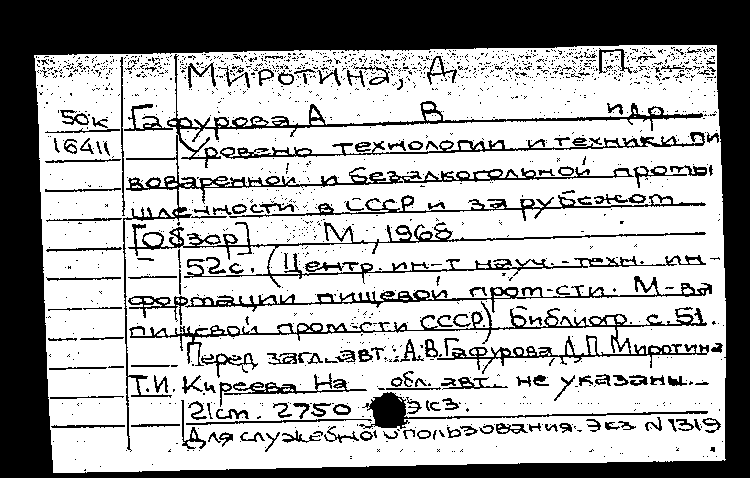 Миротина, Д. П
50к Гафурова, А В идр.
16411 Уровень технологии и техники пи
воваренной и безалкогольной промы
шленности в СССР и за рубежом
[Обзор] М., 1968
52с. (Центр. ин-т науч.-техн. ин-
формации пищевой пром-сти. М-ва
пищевой пром-сти СССР) Библиогр. с.51.
Перед загл. авт.: А.В.Гафурова, Д.П.Миротина
Т.И. Киреева На обл. авт. не указаны.
21см. 2750 экз.
Для служебного пользования. Экз N 1319